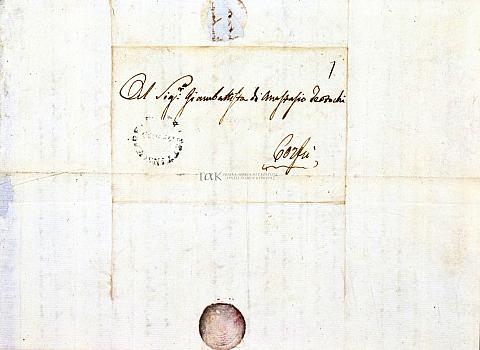 1
Al Sig.r Giambattista di Anastasio Teotochi
Corfù
ΙΑΚ